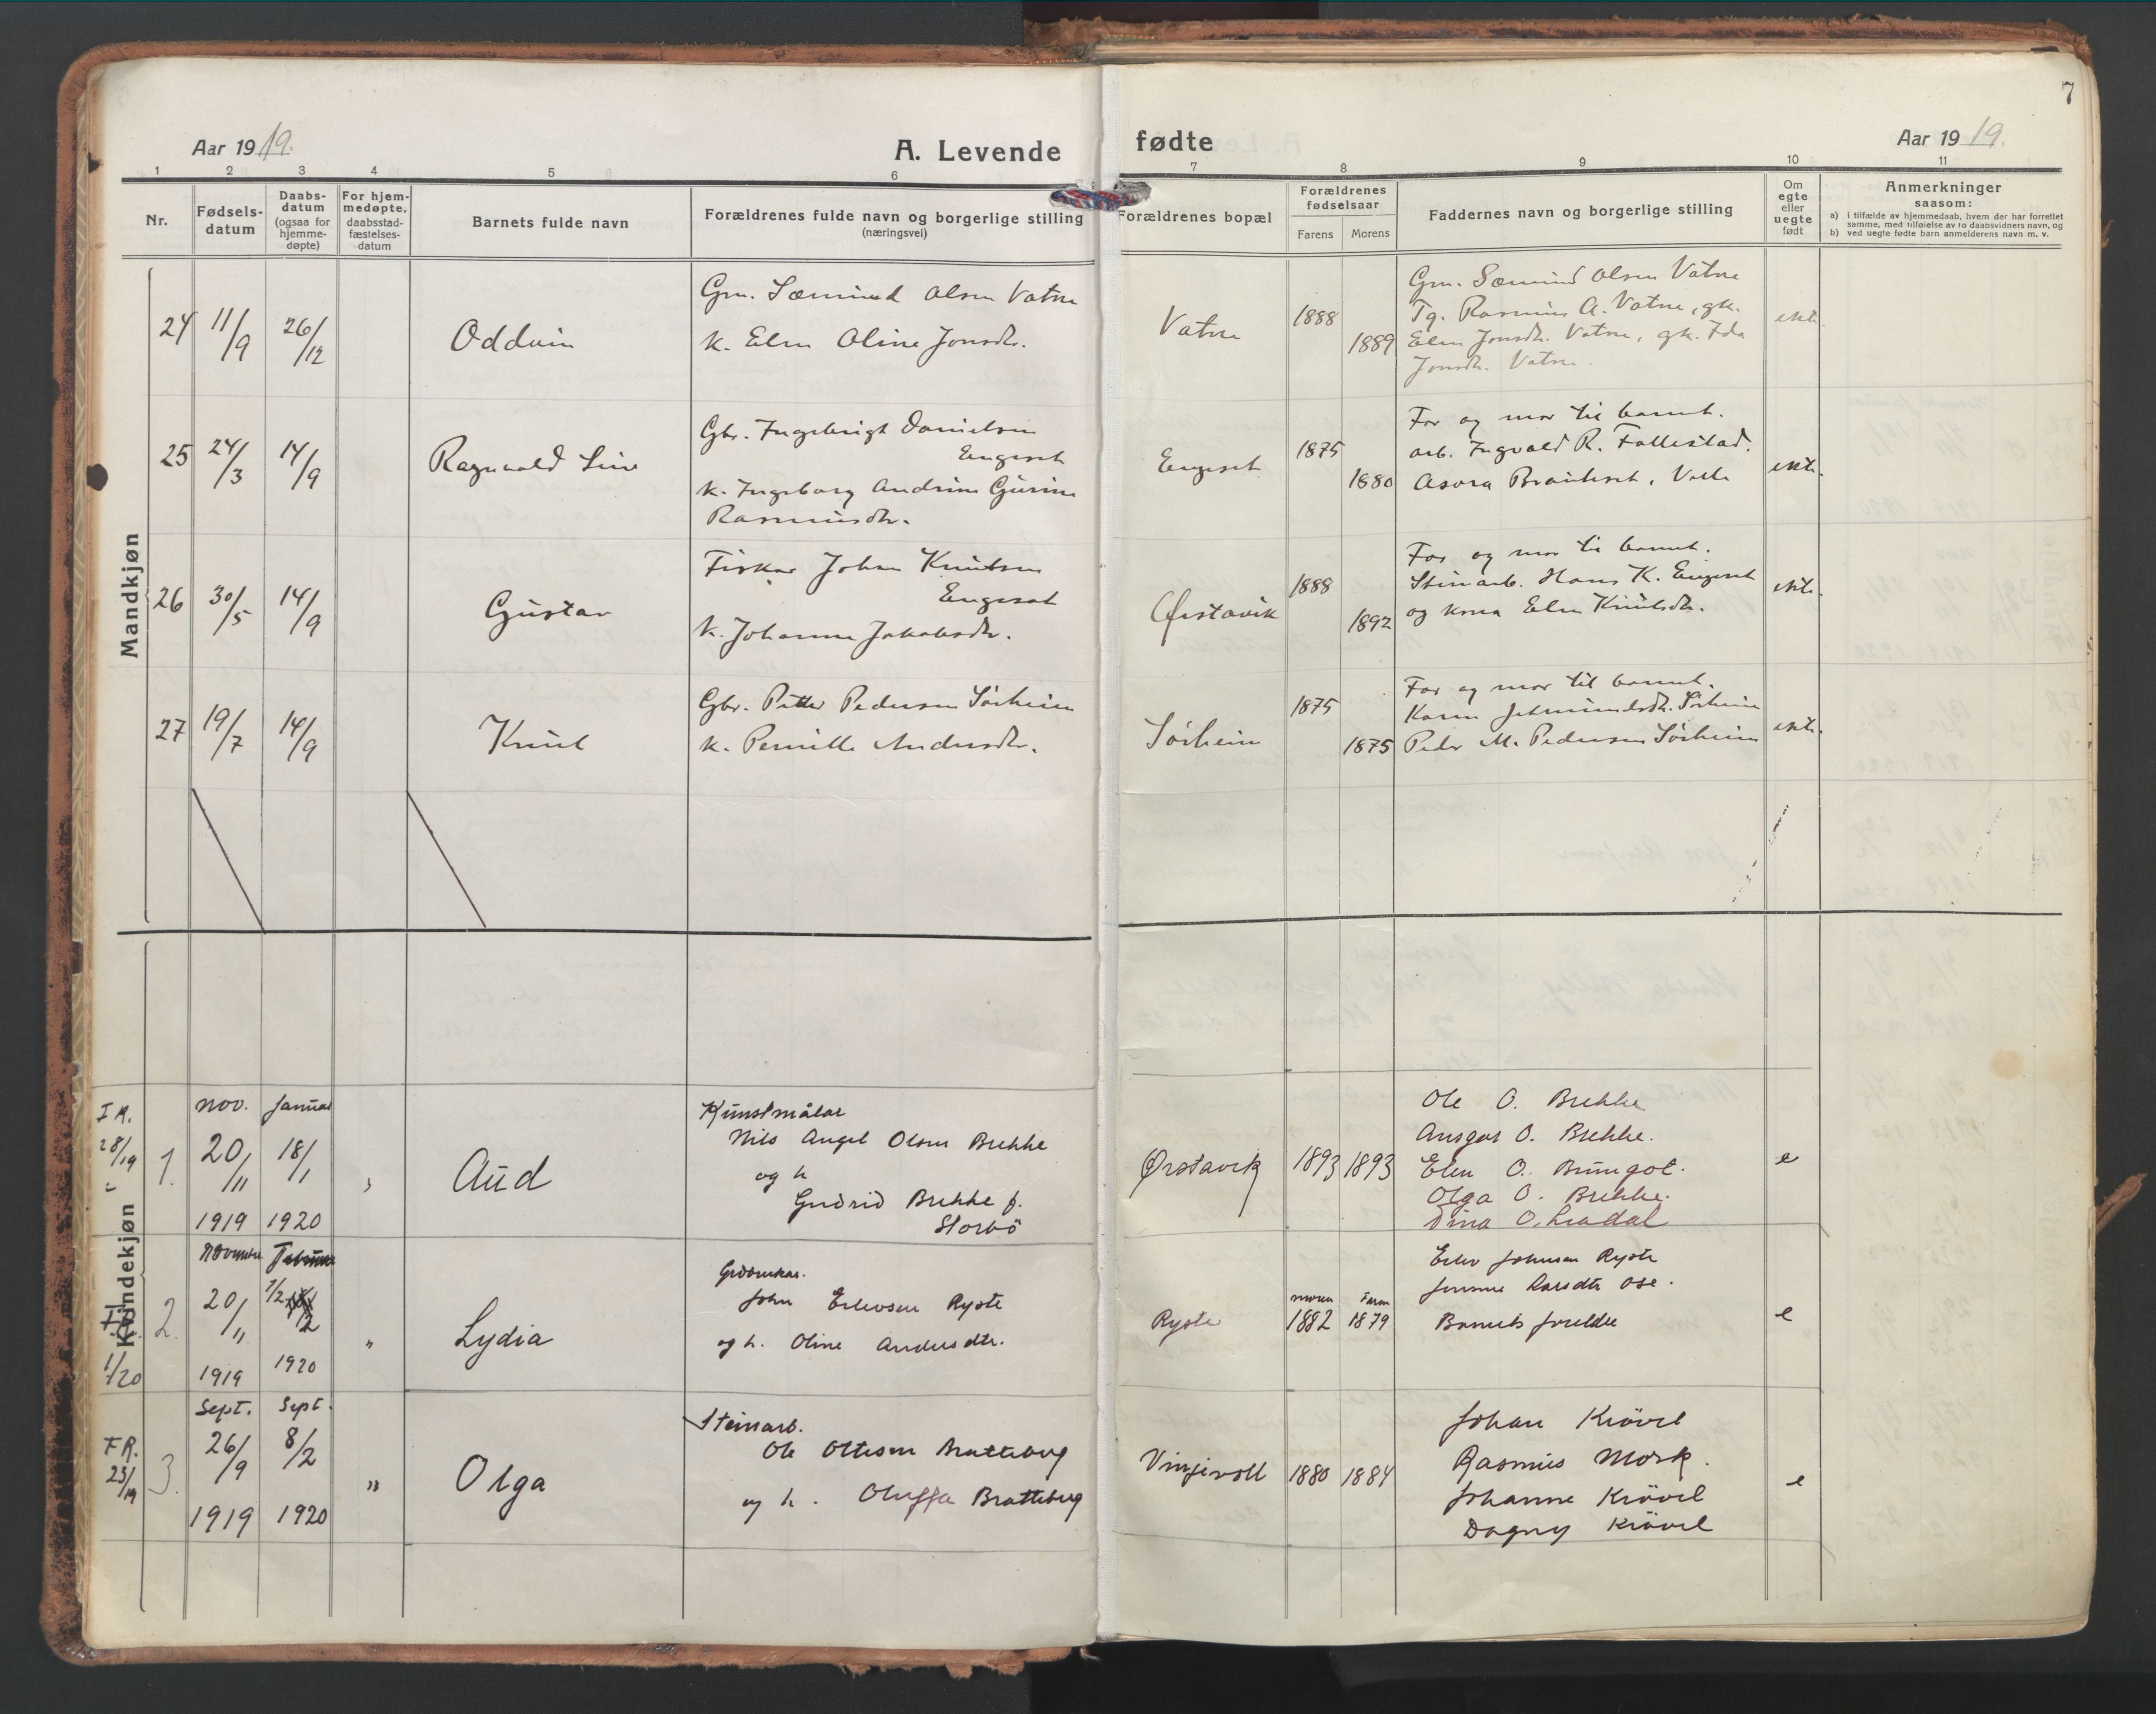 7
Aar 1919.
A. Levende
fødte
Aar 1919.
1 2 3 4 5 6 7 8 9 10 11
Nr.
Fødsels-
datum
Daabs-
datum
(ogsaa for
hjemme-
døpte)
For hjem-
medøpte,
daabsstad-
fæstelses-
datum
Barnets fulde navn
Forældrenes fulde navn og borgerlige stilling
(næringsvei)
Forældrenes bopæl
Forældrenes
fødselsaar
Farens
Morens
Faddernes navn og borgerlige stilling
Om
egte
eller
uegte
født
Anmerkninger
saasom:
a) i tilfælde av hjemmedaab, hvem der har forrettet
samme, med tilføielse av to daabsvidners navn, og
b) ved uegte fødte barn anmelderens navn m. v.
Mandkjøn
24
11/9
26/12
Oddvin
Gm. Sæmund Olsen Vatne
k. Elen Oline Jonsdtr.
Vatne
1888
1889
Gm. Sæmund Olsen Vatne
Tg. Rasmus A. Vatne, gk.
Elen Jonsdtr. Vatne, gk. Ida
Jonsdtr. Vatne.
ekte
25
24/3
14/9
Ragnvald
Gbr. Ingebrigt Danielsen
Engeset
k. Ingeborg Andrine Gurine
Rasmusdtr.
Engeset
1875
1880
Far og mor til barnet.
arb. Ingvald R. Follestad.
Asora Brauteset, Velle
ekte.
26
30/5
14/9
Gustav
Fiskar Johan Knutsen
Engeset
k. Johanne Jakobsdtr.
Ørstavik
1888
1892
Far og mor til barnet.
Steinarb. Hans K. Engeset
og kona Elen Knutsdtr.
ekte.
27
19/7
14/9
Knut
Gbr. Petter Pedersen Sørheim
k. Pernille Andersdtr.
Sørheim
1875
1875
Far og mor til barnet.
Karen Jetmundsdtr. Sørheim
Peder M. Pedersen Sørheim
ekte.
Kvindekjøn
F.R.
28/19
1.
nov.
20/11
1919
Januar
18/1
1920
"
Aud
Kunstmålar
Nils Angel Olsen Brekke
og h
Gudrid Brekke f.
Storbö
Ørstavik
1893
1893
Ole O. Brekke
Ansgar O. Brekke.
Elen O. Bungot.
Olga O. Brekke.
Dina O. Liadal
e
1/20
2.
November
20/11
1919
Februar
1/2
1920
"
Lydia
Gardbrukar.
John Erlevsen Ryste
og h. Oline Andersdtr.
Ryste
moren
1882
Faren
1879
Erlev Johnsen Ryste
Jensine Larsdtr Ose.
Barnets foreldre
e
F.R.
23/19
3.
Sept.
26/9
1919
Sept.
8/2
1920
"
Olga
Steinarb.
Ole Ottesen Bratteberg
og h. Oluffa Bratteberg
Vinjevoll
1880
1884
Johan Krövel
Rasmus Mork.
Johanne Krövel
Dagny Krövel
e